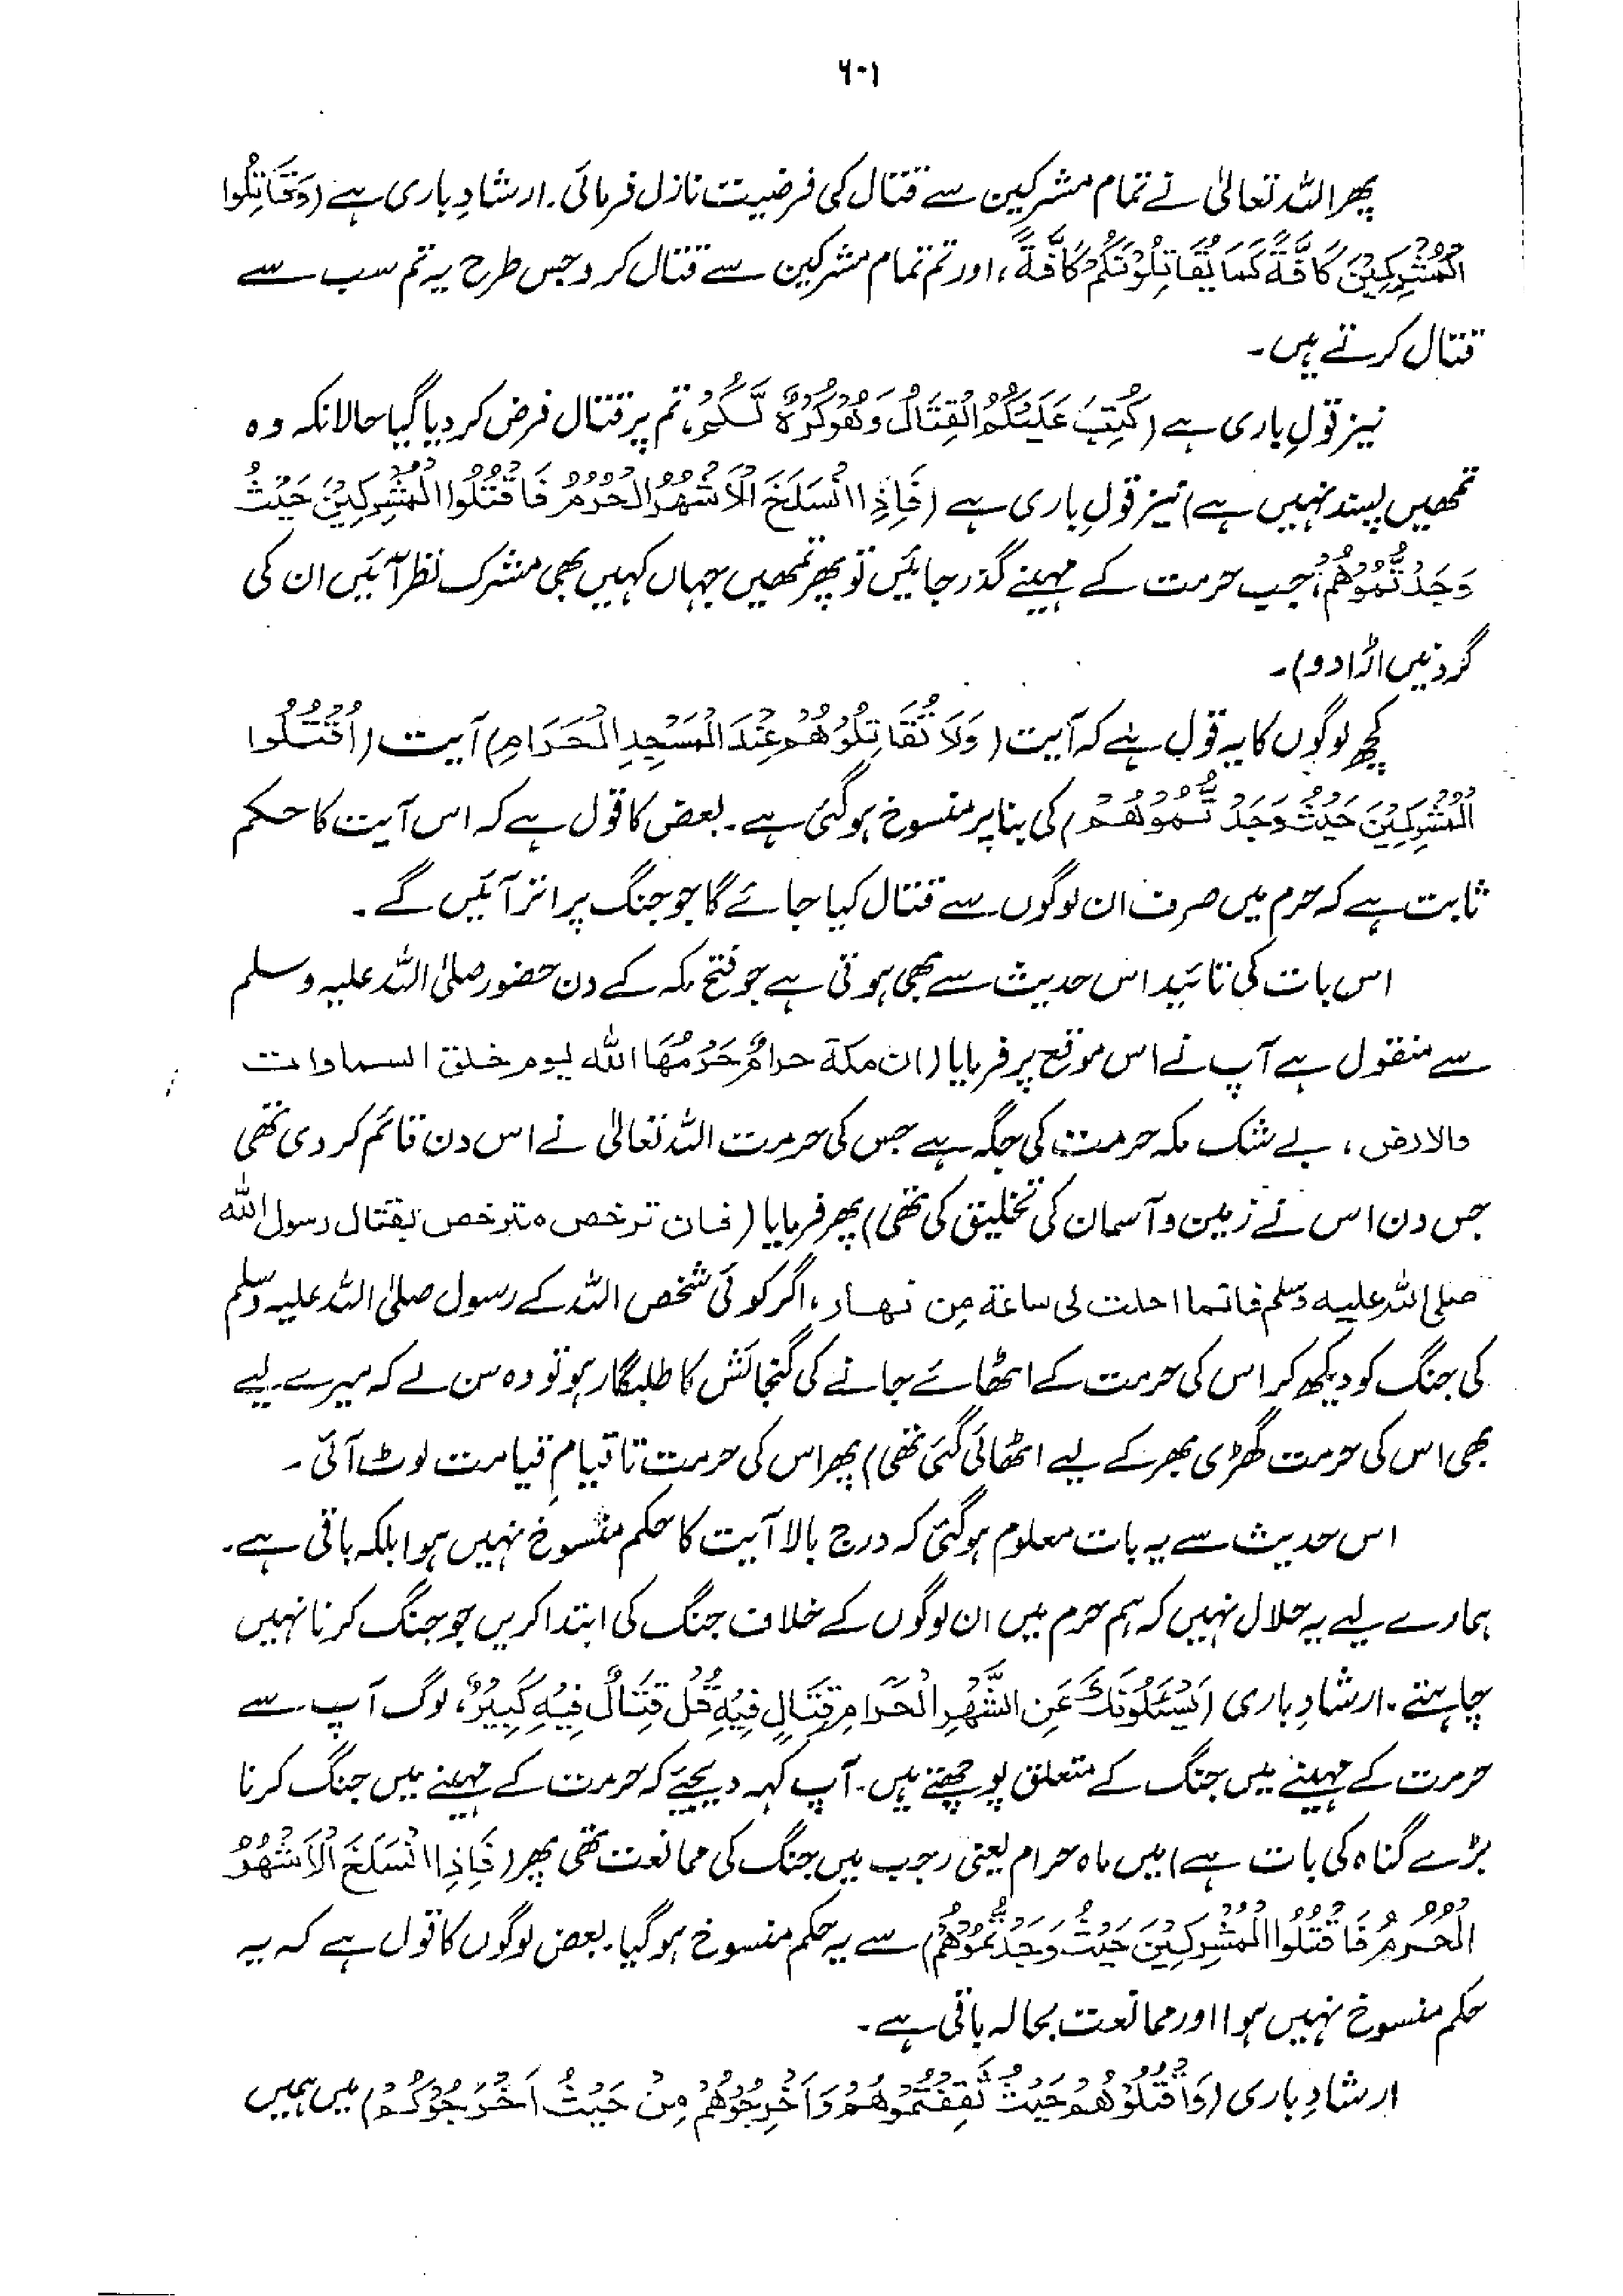 ۶۰۱
پھر اللہ تعالیٰ نے تمام مشرکین سے قتال کی فرضیت نازل فرمائی۔ ارشادِ باری ہے (وَقَاتِلُوا
الْمُشْرِكِيْنَ كَافَّةً كَمَا يُقَاتِلُوْنَكُمْ كَافَّةً، اور تم تمام مشرکین سے قتال کرو جس طرح یہ تم سب سے
قتال کرتے ہیں۔
نیز قولِ باری ہے (كُتِبَ عَلَيْكُمُ الْقِتَالُ وَهُوَ كُرْهٌ لَّكُمْ، تم پر قتال فرض کر دیا گیا حالانکہ وہ
تمھیں پسند نہیں ہے) نیز قولِ باری ہے (فَاِذَا انْسَلَخَ الْاَشْهُرُ الْحُرُمُ فَاقْتُلُوا الْمُشْرِكِيْنَ حَيْثُ
وَجَدْتُّمُوْهُمْ، جب حرمت کے مہینے گذر جائیں تو پھر تمھیں جہاں کہیں بھی مشرک نظر آئیں ان کی
گردنیں اڑا دو)۔
کچھ لوگوں کا یہ قول ہے کہ آیت (وَلَا تُقَاتِلُوْهُمْ عِنْدَ الْمَسْجِدِ الْحَرَامِ) آیت (اُقْتُلُوا
الْمُشْرِكِيْنَ حَيْثُ وَجَدْتُّمُوْهُمْ) کی بنا پر منسوخ ہو گئی ہے۔ بعض کا قول ہے کہ اس آیت کا حکم
ثابت ہے کہ حرم میں صرف ان لوگوں سے قتال کیا جائے گا جو جنگ پر اتر آئیں گے۔
اس بات کی تائید اس حدیث سے بھی ہوتی ہے جو فتح مکہ کے دن حضور صلی اللہ علیہ وسلم
سے منقول ہے آپ نے اس موقع پر فرمایا (ان مكة حرامٌ حَرَّمَهَا الله يوم خلق السماوات
والارض، بے شک مکہ حرمت کی جگہ ہے جس کی حرمت اللہ تعالیٰ نے اس دن قائم کر دی تھی
جس دن اس نے زمین و آسمان کی تخلیق کی تھی) پھر فرمایا (فان ترخص مترخص بقتال رسول الله
صلی اللہ علیہ وسلم فانما احلت لی ساعة من نهار، اگر کوئی شخص اللہ کے رسول صلی اللہ علیہ وسلم
کی جنگ کو دیکھ کر اس کی حرمت کے اٹھائے جانے کی گنجائش کا طلبگار ہو تو وہ سن لے کہ میرے لیے
بھی اس کی حرمت گھڑی بھر کے لیے اٹھائی گئی تھی) پھر اس کی حرمت تا قیامِ قیامت لوٹ آئی۔
اس حدیث سے یہ بات معلوم ہو گئی کہ درج بالا آیت کا حکم منسوخ نہیں ہوا بلکہ باقی ہے۔
ہمارے لیے یہ حلال نہیں کہ ہم حرم میں ان لوگوں کے خلاف جنگ کی ابتدا کریں جو جنگ کرنا نہیں
چاہتے۔ ارشادِ باری (يَسْئَلُوْنَكَ عَنِ الشَّهْرِ الْحَرَامِ قِتَالٍ فِيْهِ قُلْ قِتَالٌ فِيْهِ كَبِيْرٌ، لوگ آپ سے
حرمت کے مہینے میں جنگ کے متعلق پوچھتے ہیں۔ آپ کہہ دیجیے کہ حرمت کے مہینے میں جنگ کرنا
بڑے گناہ کی بات ہے) میں ماہ حرام یعنی رجب میں جنگ کی ممانعت تھی پھر (فَاِذَا انْسَلَخَ الْاَشْهُرُ
الْحُرُمُ فَاقْتُلُوا الْمُشْرِكِيْنَ حَيْثُ وَجَدْتُّمُوْهُمْ) سے یہ حکم منسوخ ہو گیا۔ بعض لوگوں کا قول ہے کہ یہ
حکم منسوخ نہیں ہوا اور ممانعت بحالہ باقی ہے۔
ارشادِ باری (وَاقْتُلُوْهُمْ حَيْثُ ثَقِفْتُمُوْهُمْ وَاَخْرِجُوْهُمْ مِنْ حَيْثُ اَخْرَجُوْكُمْ) میں ہمیں